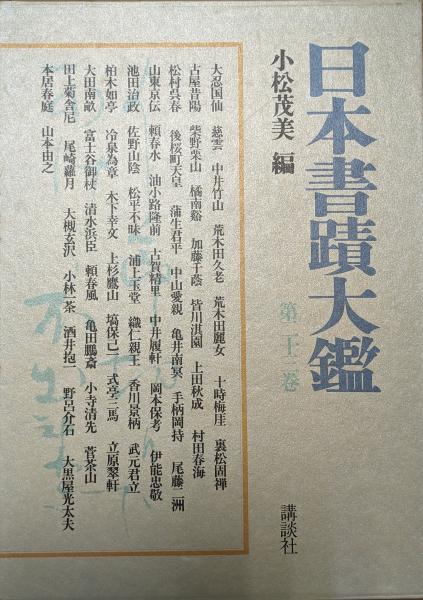 日本書蹟大鑑
第二十二巻
小松茂美 編
講談社
大忍国仙 慈雲 中井竹山 荒木田久老 荒木田麗女 十時梅厓 裏松固禅
古屋昔陽 柴野栗山 橘南谿 加藤千蔭 皆川淇園 上田秋成 村田春海
松村呉春 後桜町天皇 蒲生君平 中山愛親 亀井南冥 手柄岡持 尾藤二洲
山東京伝 頼春水 油小路隆前 古賀精里 中井履軒 岡本保考 伊能忠敬
池田治政 佐野山陰 松平不昧 浦上玉堂 織仁親王 香川景柄 武元君立
柏木如亭 冷泉為章 木下幸文 上杉鷹山 塙保己一 式亭三馬 立原翠軒
大田南畝 富士谷御杖 清水浜臣 頼春風 亀田鵬斎 小寺清先 菅茶山
田上菊舎尼 尾崎蘿月 大槻玄沢 小林一茶 酒井抱一 野呂介石 大黒屋光太夫
本居春庭 山本由之